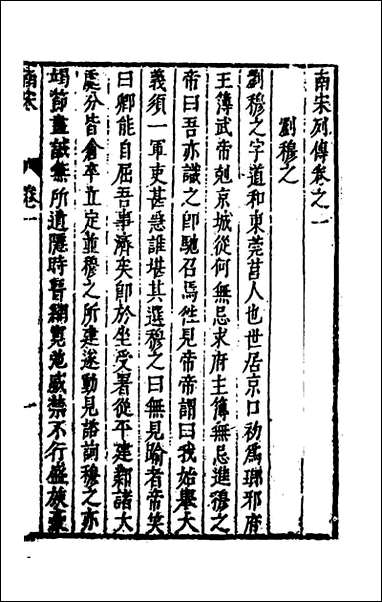 南宋列傳卷之一
劉穆之
劉穆之字道和東莞莒人也世居京口初爲瑯邪府
主簿武帝剋京城從何無忌求府主簿無忌進穆之
帝曰吾亦識之即馳召焉徃見帝帝謂曰我始舉大
義須一軍吏甚急誰堪其選穆之曰無見踰者帝笑
曰卿能自屈吾事濟矣卽於坐受署從平建鄴諸大
處分皆倉卒立定並穆之所建遂動見諮詢穆之亦
竭節盡誠無所遺隱時晉綱寬弛威禁不行盛族豪
南宋 卷一 一